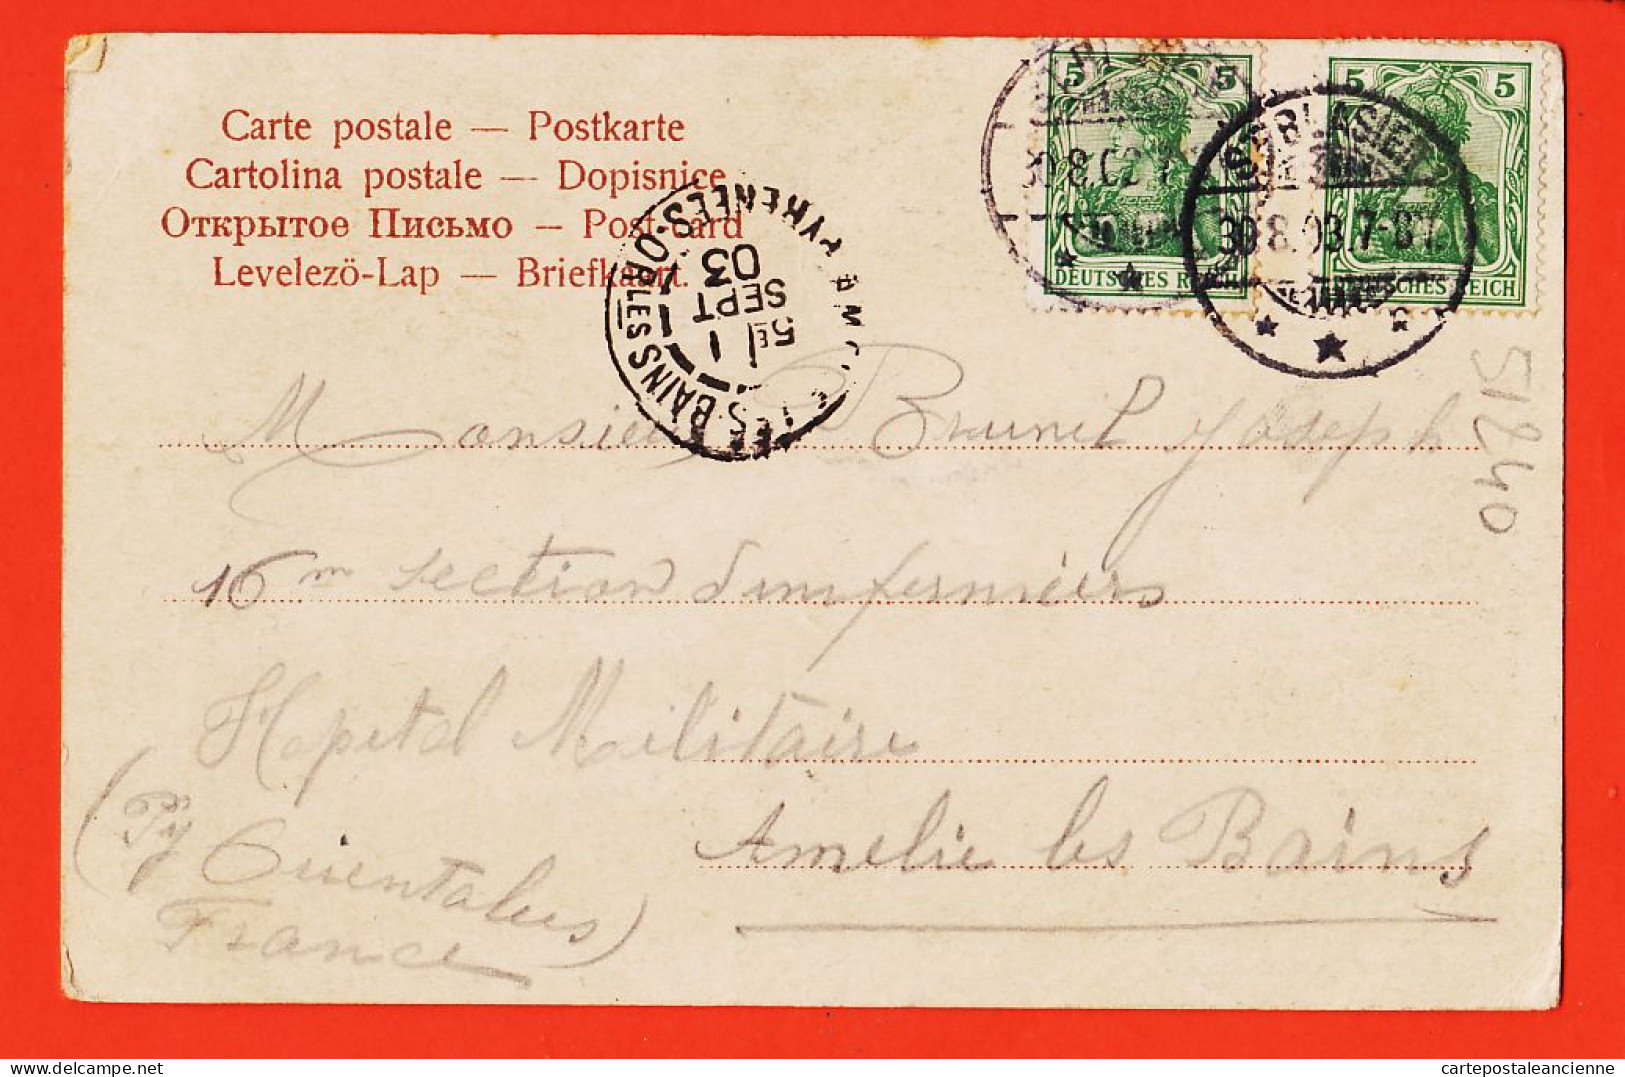 Carte postale — Postkarte
Cartolina postale — Dopisnice
Открытое Письмо — Post card
Levelezö-Lap — Briefkaart.
5 5
DEUTSCHES REICH
30.8.03
5 5
DEUTSCHES REICH
30.8.03.7-8V.
AMELIE LES BAINS
PYRENEES-ORLES
5E
1
SEPT
03
Monsieur Brunel Joseph
16m section d'infermiers
Hopital Militaire
Amelie les Bains
(Py Orientales)
France
51240
delcampe.net
cartepostaleancienne